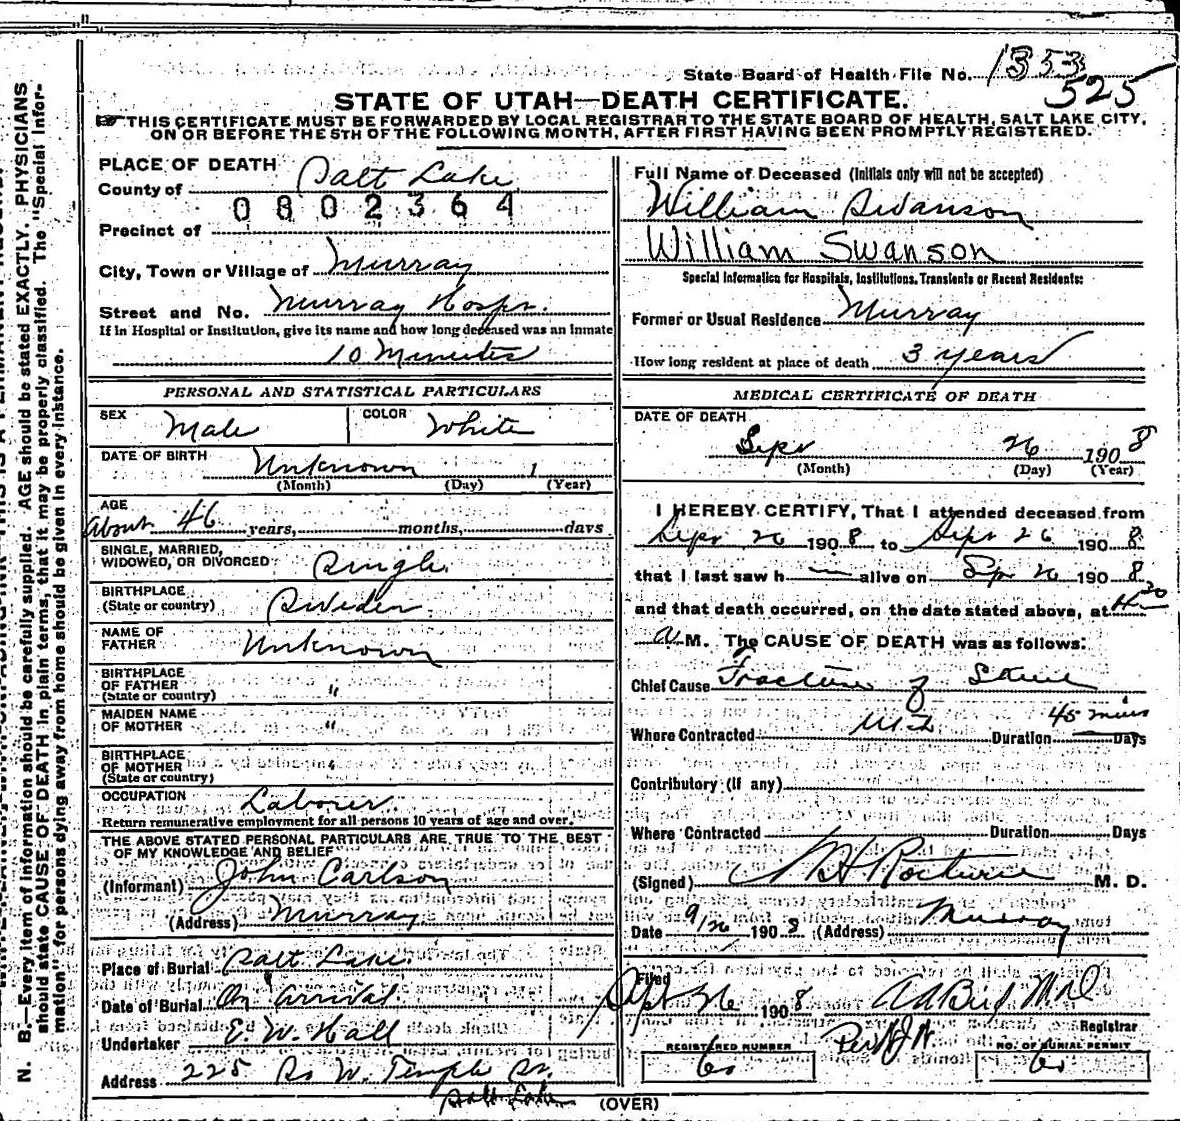 State Board of Health File No. 1353
525
STATE OF UTAH—DEATH CERTIFICATE.
THIS CERTIFICATE MUST BE FORWARDED BY LOCAL REGISTRAR TO THE STATE BOARD OF HEALTH, SALT LAKE CITY,
ON OR BEFORE THE 5TH OF THE FOLLOWING MONTH, AFTER FIRST HAVING BEEN PROMPTLY REGISTERED.
PLACE OF DEATH
County of Salt Lake
0802364
Precinct of
City, Town or Village of Murray
Street and No. Murray Hosp.
If in Hospital or Institution, give its name and how long deceased was an inmate
10 Minutes
PERSONAL AND STATISTICAL PARTICULARS
SEX Male COLOR White
DATE OF BIRTH Unknown 1
(Month) (Day) (Year)
AGE
About 46 years, months, days
SINGLE, MARRIED,
WIDOWED, OR DIVORCED Single
BIRTHPLACE
(State or country) Sweden
NAME OF
FATHER Unknown
BIRTHPLACE
OF FATHER
(State or country) "
MAIDEN NAME
OF MOTHER "
BIRTHPLACE
OF MOTHER
(State or country) "
OCCUPATION Laborer.
Return remunerative employment for all persons 10 years of age and over.
THE ABOVE STATED PERSONAL PARTICULARS ARE TRUE TO THE BEST
OF MY KNOWLEDGE AND BELIEF
(Informant) John Carlson
(Address) Murray
Place of Burial Salt Lake
Date of Burial On arrival.
Undertaker E. W. Hall
Address 225 So W. Temple St.
Salt Lake
Full Name of Deceased (Initials only will not be accepted)
William Swanson
William Swanson
Special Information for Hospitals, Institutions, Transients or Recent Residents:
Former or Usual Residence Murray
How long resident at place of death 3 years
MEDICAL CERTIFICATE OF DEATH
DATE OF DEATH
Sept 26 1908
(Month) (Day) (Year)
I HEREBY CERTIFY, That I attended deceased from
Sept 26 1908 to Sept 26 1908
that I last saw h — alive on Sep 26 1908
and that death occurred, on the date stated above, at
A M. The CAUSE OF DEATH was as follows:
Chief Cause Fracture of Skull
Where Contracted 45 mins Duration Days
Contributory (If any)
Where Contracted Duration Days
(Signed) M. D.
Date 9/26 1908 (Address) Murray
Filed
Sept 26 1908 A A Bird M D
Registrar
REGISTERED NUMBER NO. OF BURIAL PERMIT
60 60
(OVER)
N. B.—Every item of information should be carefully supplied. AGE should be stated EXACTLY. PHYSICIANS
should state CAUSE OF DEATH in plain terms, that it may be properly classified. The "Special Infor-
mation" for persons dying away from home should be given in every instance.